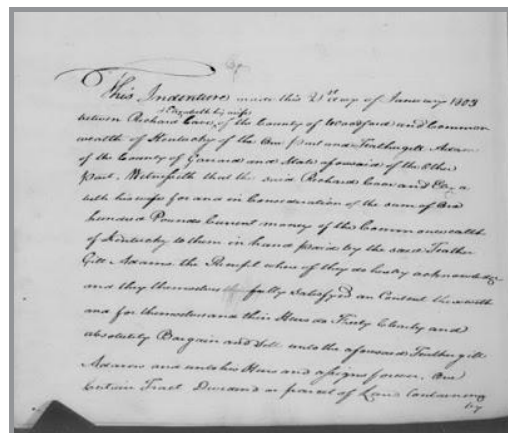 This Indenture made this 21st day of January 1803
& Elizabeth his wife
between Richard Cave, of the County of Woodford and Common
wealth of Kentucky of the One part and Feathergill Adams
of the County of Garrard and State aforesaid of the Other
part. Witnesseth that the said Richard Cave and Eliza
beth his wife for and in Consideration of the sum of One
hundred Pounds Current money of the Commonwealth
of Kentucky to them in hand paid by the said Feather
Gill Adams the Receipt where of they do hereby acknowledge
and they themselves fully Satisfyed an Content therewith
and for themselves and their Heirs do Freely Clearly and
absolutely Bargain and Sell unto the aforesaid Feathergill
Adams and unto his Heirs and assigns forever. One
Certain Tract Dividend or parcel of Land Containing
by